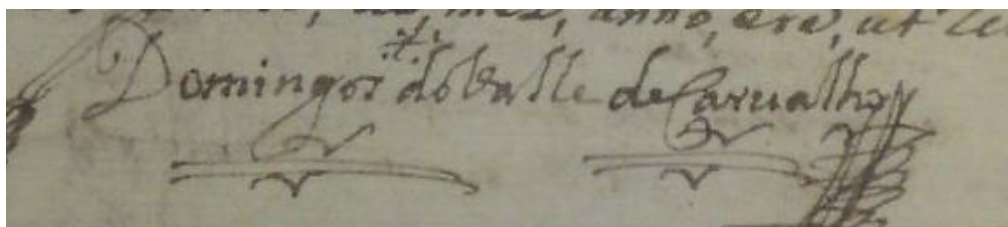 mez, anno, era, ut
Domingos do Valle de Carvalho